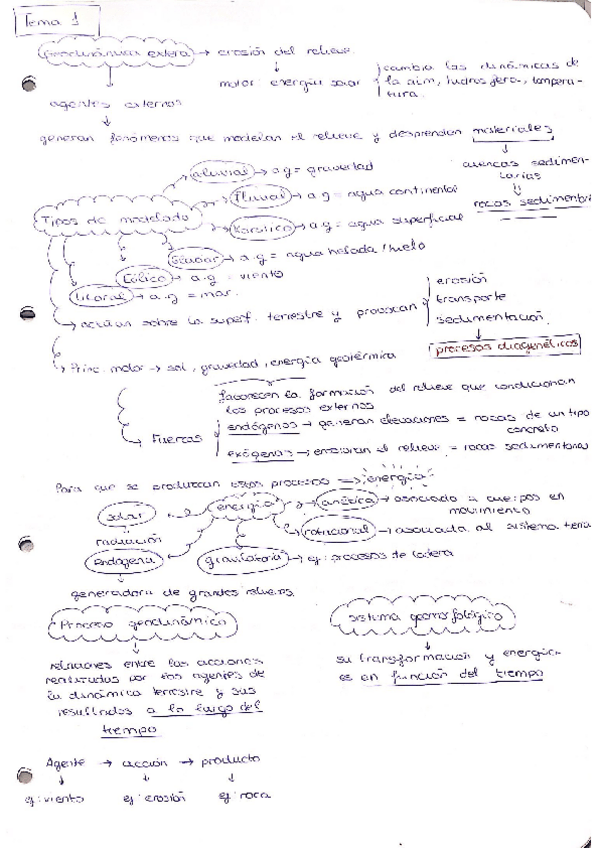 Tema 1
Geodinámica externa → erosión del relieve
motor: energía solar
cambia las dinámicas de
la atm, hidrosfera, tempera-
tura.
agentes externos
generan fenómenos que modelan el relieve y desprenden materiales
cuencas sedimen-
tarias
rocas sedimentarias
Tipos de modelado
Aluvial → a.g = gravedad
Fluvial → a.g = agua continental
Kárstico → a.g = agua superficial
Glaciar → a.g = agua helada / hielo
Eólico → a.g = viento
Litoral → a.g = mar.
→ actúan sobre la superf. terrestre y provocan
erosión
transporte
sedimentación
procesos diagenéticos
→ Princ. motor → sol, gravedad, energía geotérmica
favorecen la formación del relieve que condicionan
los procesos externos
→ Fuerzas
endógenos → generan elevaciones = rocas de un tipo
concreto
exógenas → erosionan el relieve = rocas sedimentarias
Para que se produzcan estos procesos ⇒ energía
energía
solar
radiación
endógena
generadora de grandes relieves
gravitatoria → ej: procesos de ladera
cinética → asociado a cuerpos en
movimiento
rotacional → asociada al sistema tierra
Proceso geodinámico
relaciones entre las acciones
realizadas por los agentes de
la dinámica terrestre y sus
resultados a lo largo del
tiempo
sistema geomorfológico
su transformación y energía
es en función del tiempo
Agente → acción → producto
ej: viento ej: erosión ej: roca